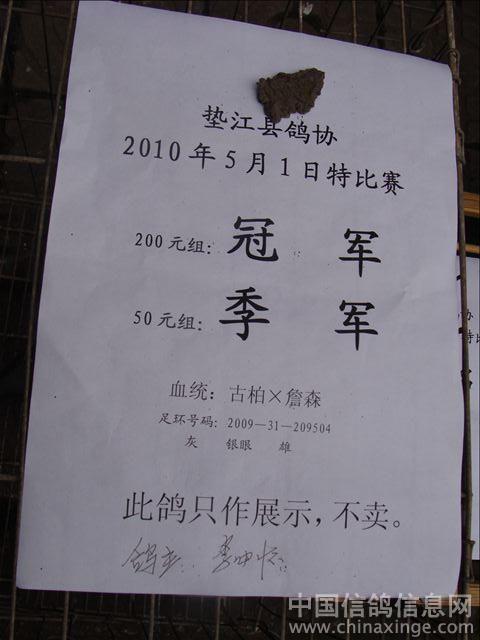 垫江县鸽协
2010年5月1日特比赛
200元组：冠 军
50元组：季 军
血统：古柏×詹森
足环号码：2009—31—209504
灰 银眼 雄
此鸽只作展示，不卖。
鸽主：李
中国信鸽信息网
www.chinaxinge.com